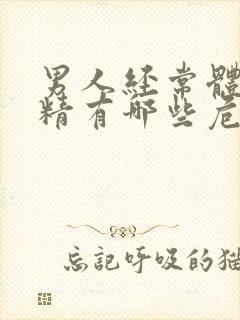 男人经常體
精有哪些危
忘記呼吸的猫